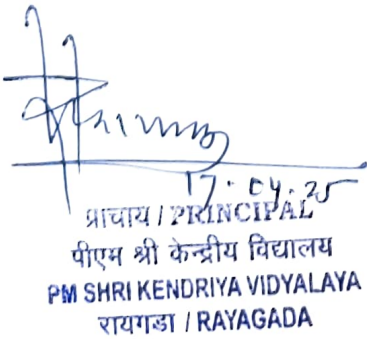 17.04.25
प्राचार्य / PRINCIPAL
पीएम श्री केन्द्रीय विद्यालय
PM SHRI KENDRIYA VIDYALAYA
रायगडा / RAYAGADA